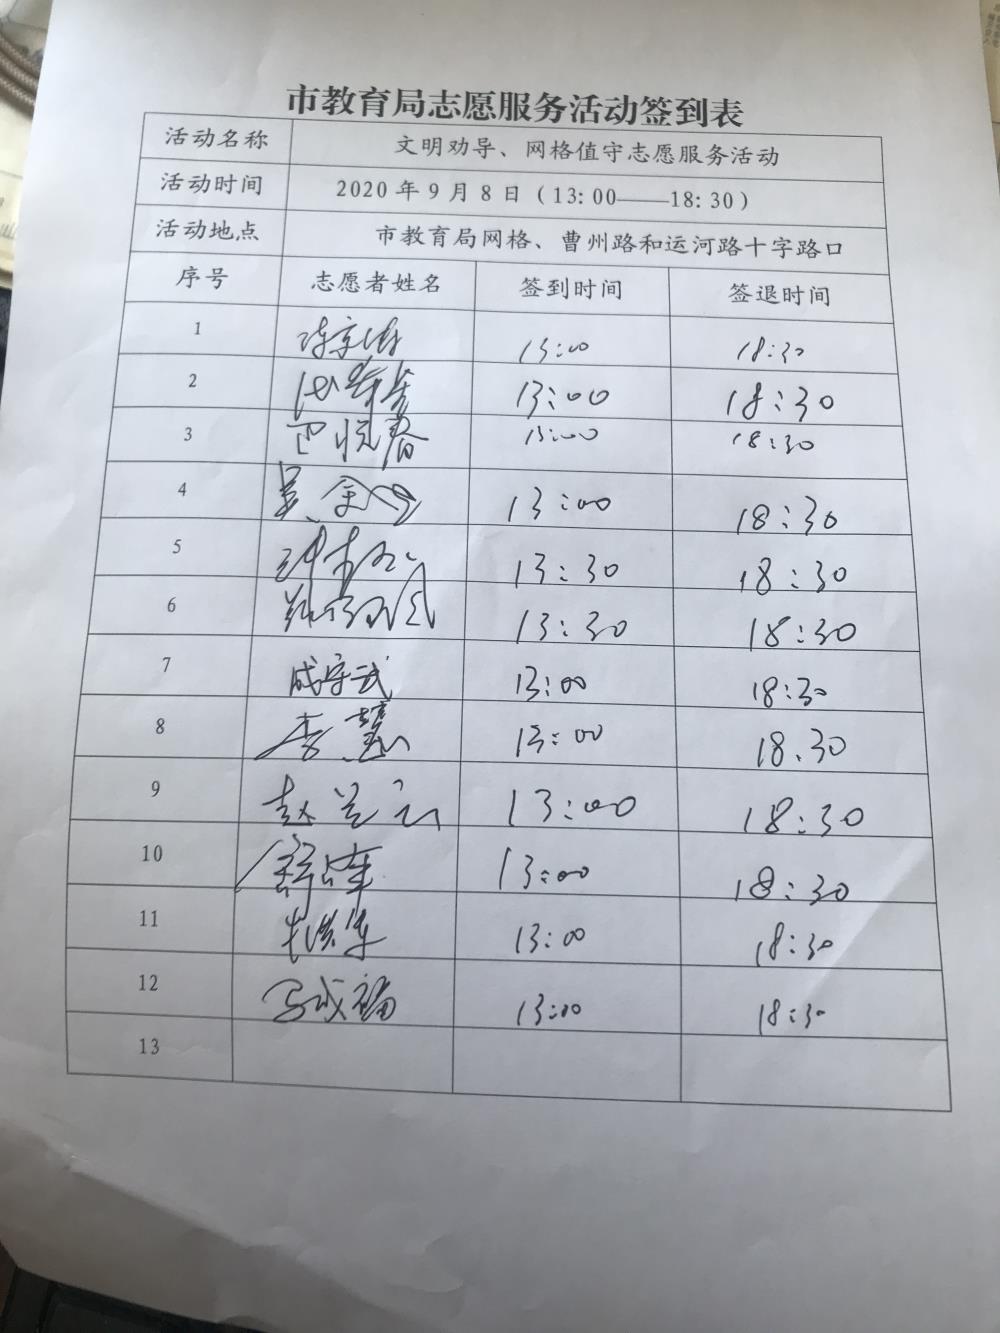 市教育局志愿服务活动签到表
活动名称 文明劝导、网格值守志愿服务活动
活动时间 2020年9月8日(13:00——18:30)
活动地点 市教育局网格、曹州路和运河路十字路口
序号 志愿者姓名 签到时间 签退时间
1 13:00 18:30
2 13:00 18:30
3 13:00 18:30
4 13:00 18:30
5 13:30 18:30
6 13:30 18:30
7 成守武 13:00 18:30
8 李慧 13:00 18.30
9 赵兰云 13:00 18:30
10 13:00 18:30
11 13:00 18:30
12 马成福 13:00 18:30
13